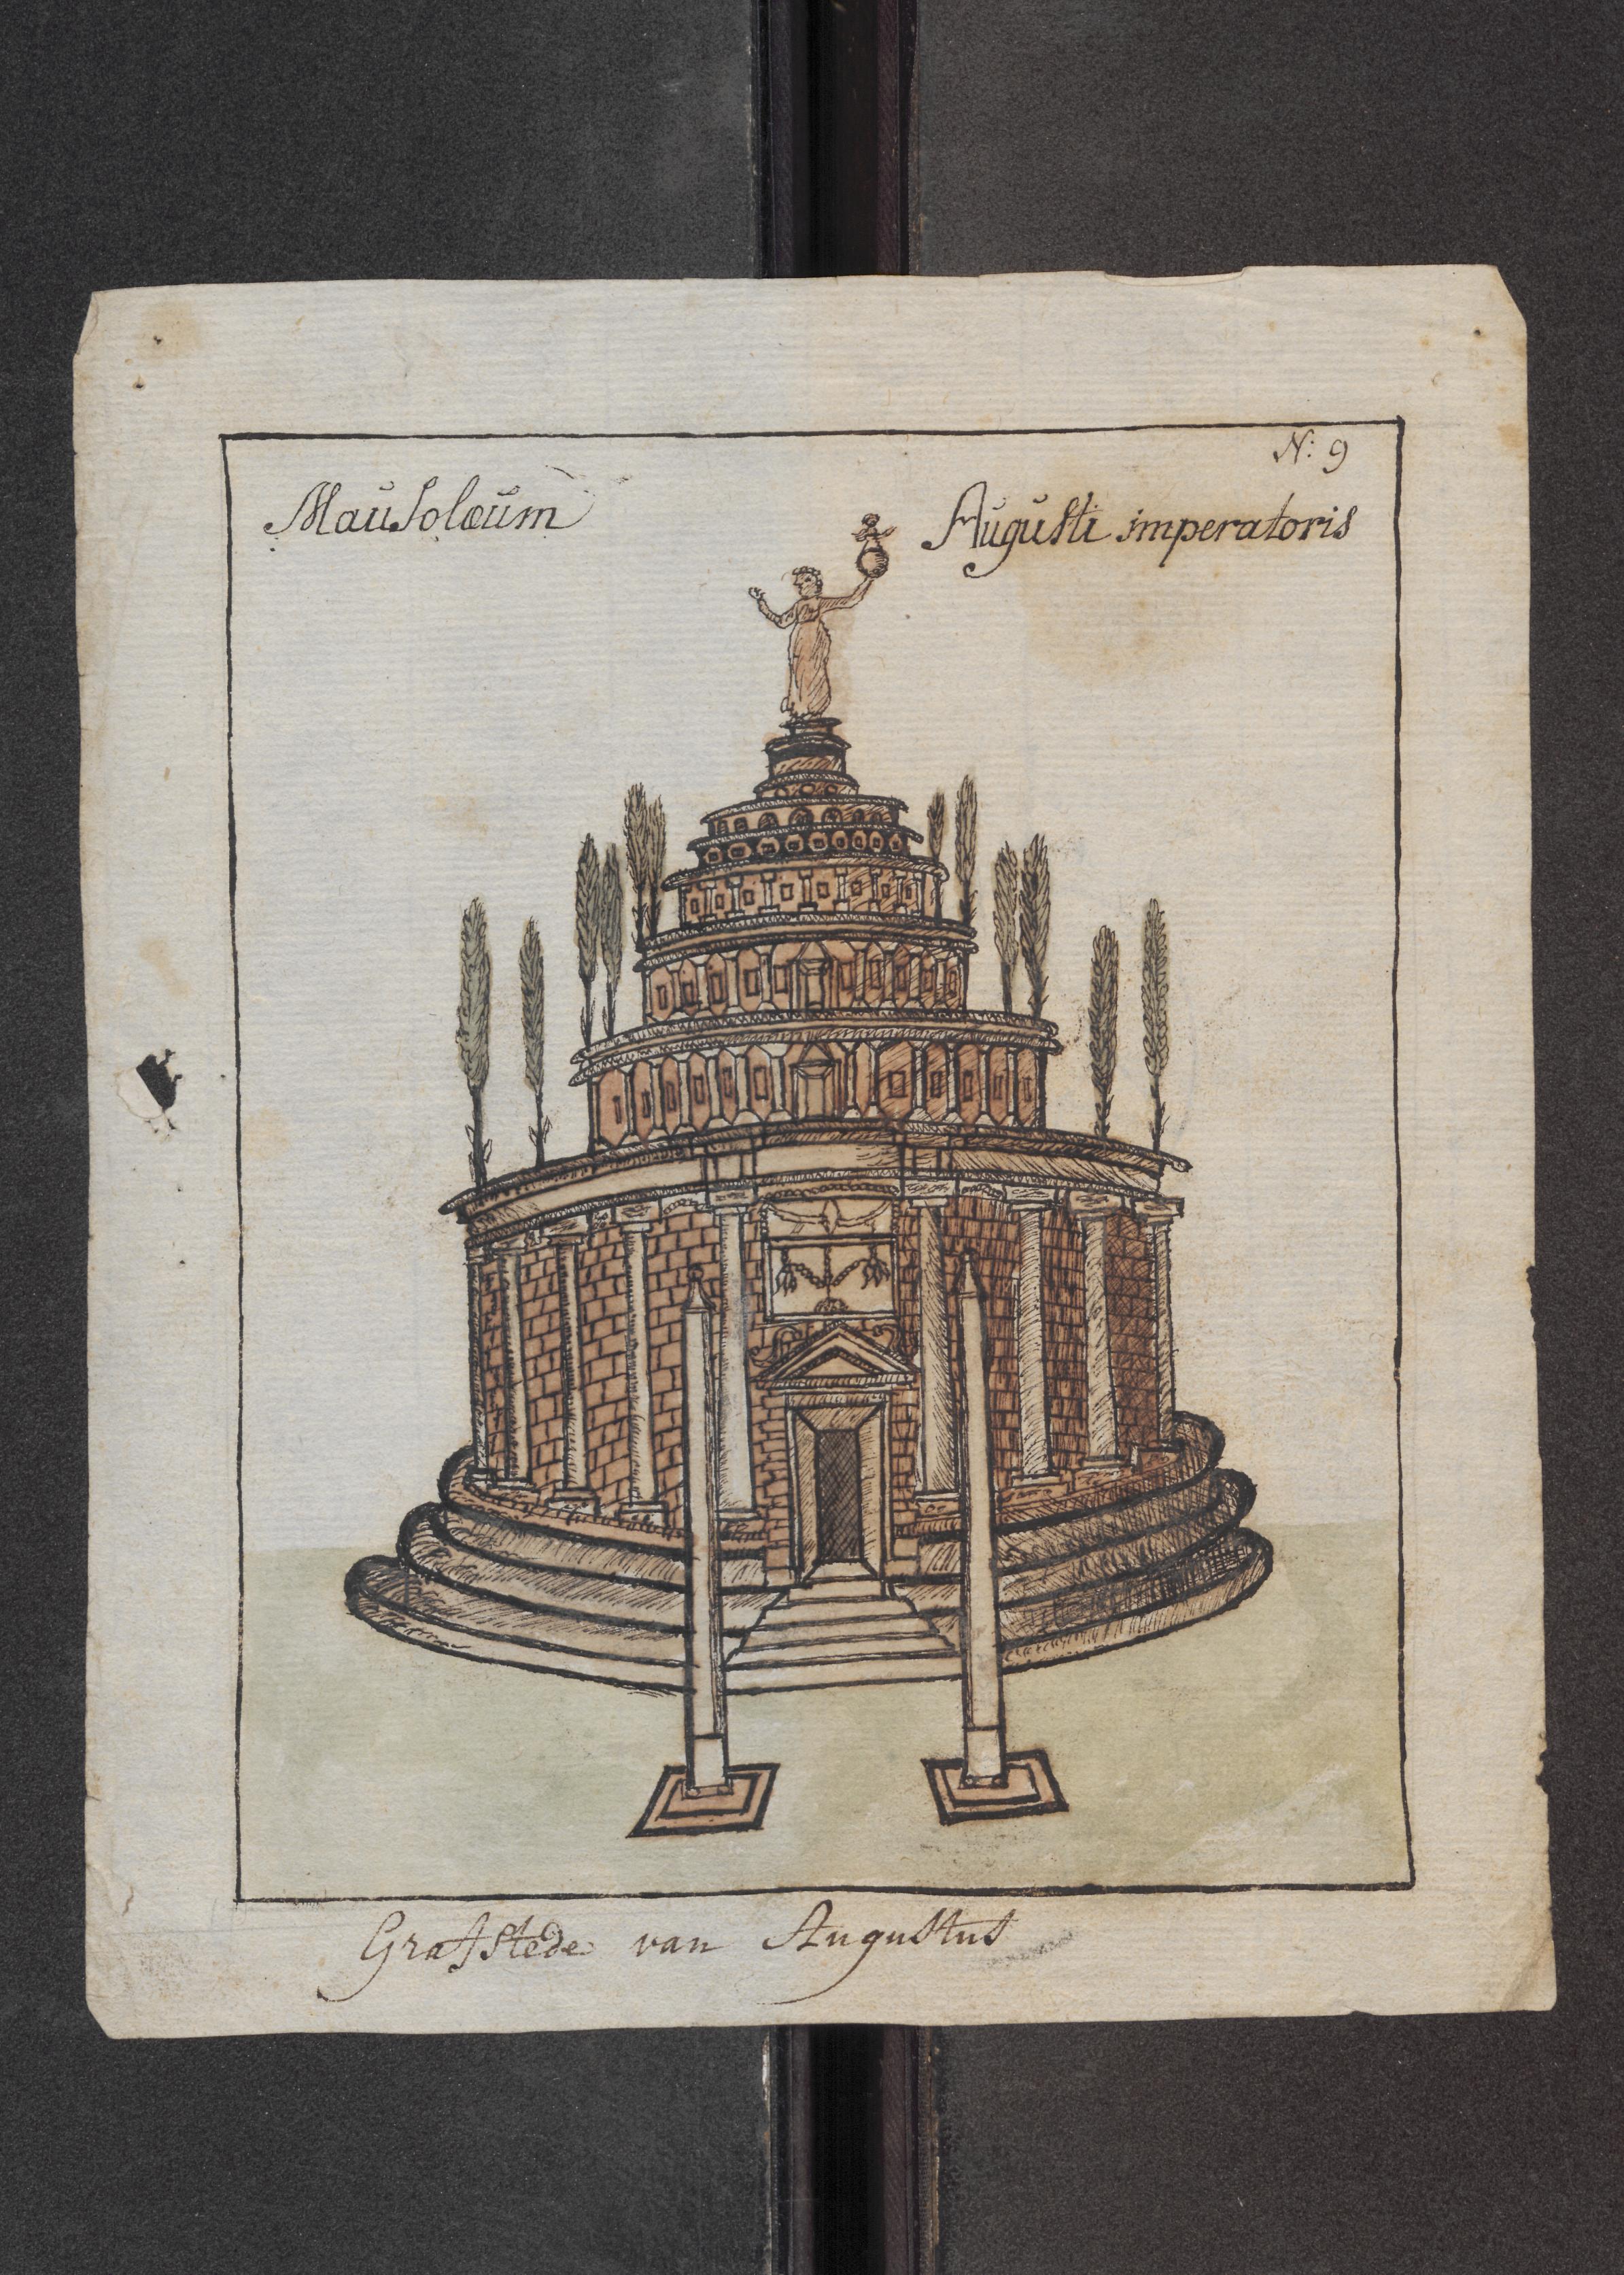 N: 9
Mausolæum Augusti imperatoris
Grafstede van Augustus